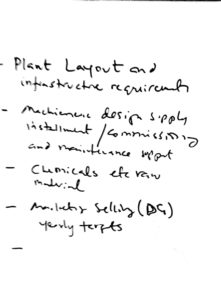 - Plant Layout and
infrastructure requirements
- Machineries design supply
installment / commissioning
and maintenance support
- Chemicals etc raw
material
- Marketing Selling (DG)
yearly targets
-